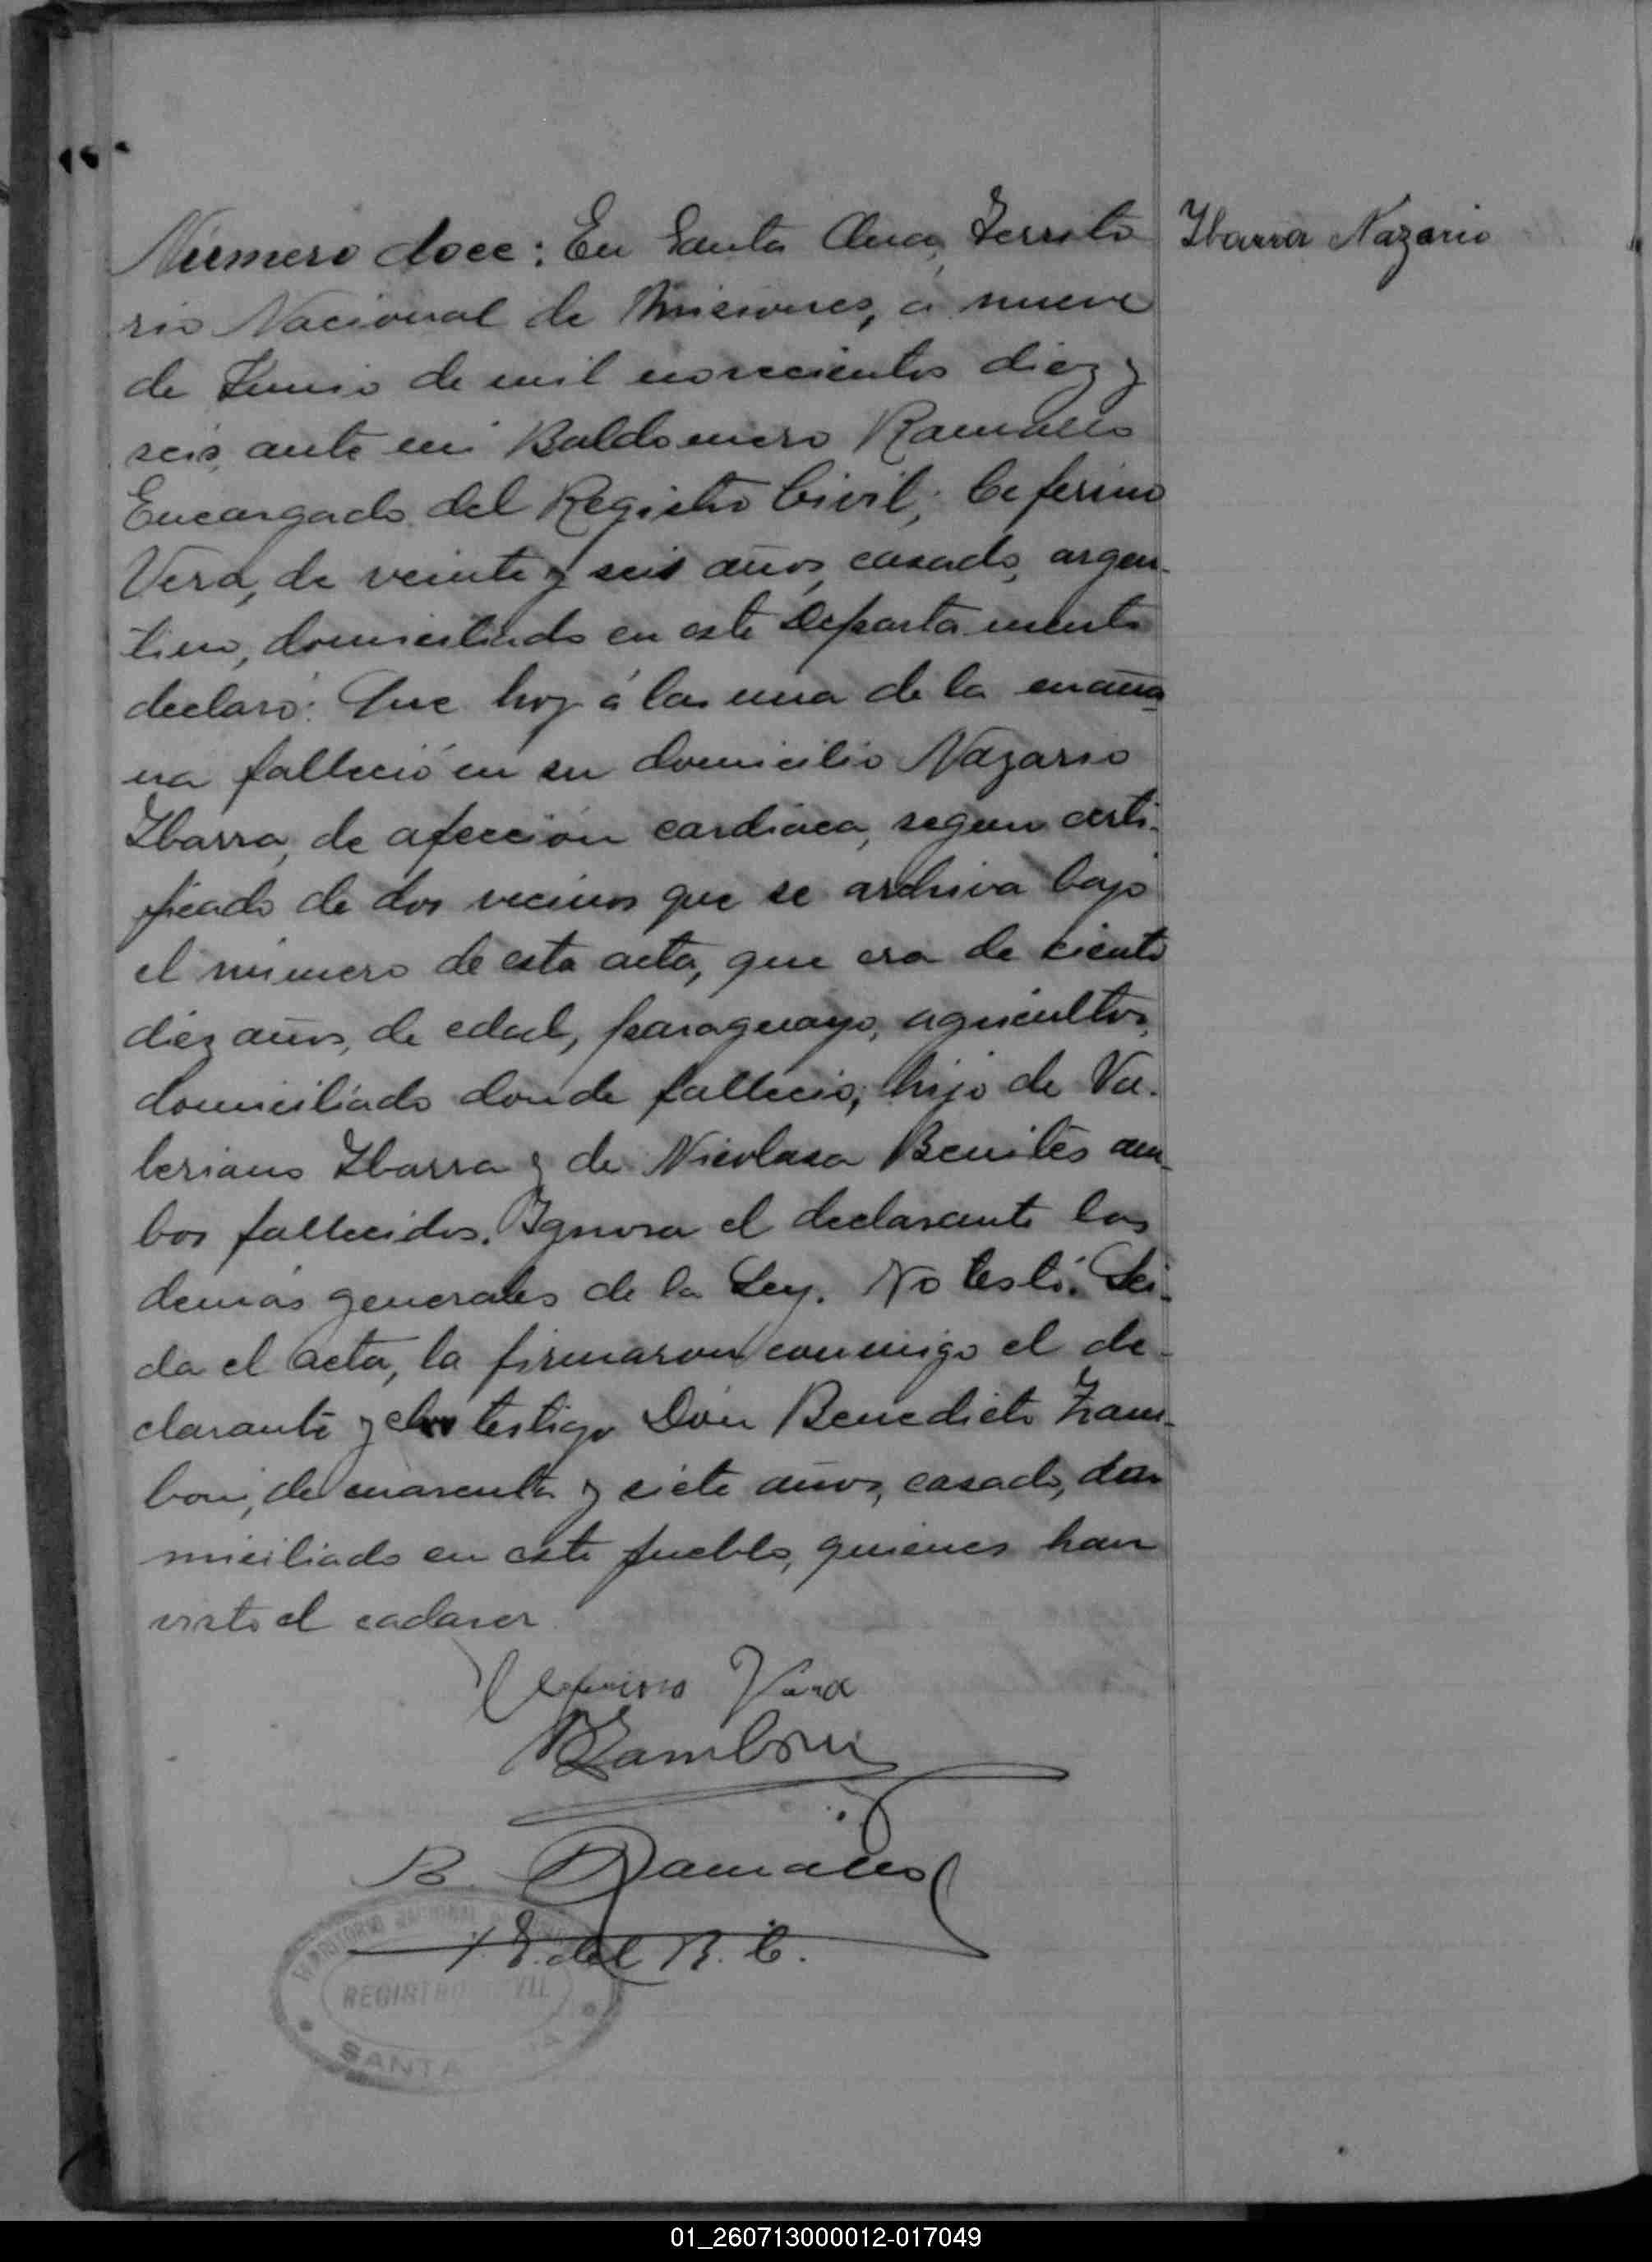 Número doce: En Santa Ana, Territo
Ibarra Nazario
rio Nacional de Misiones, a nueve
de Junio de mil novecientos diez y
seis, ante mi Baldomero Ramallo
Encargado del Registro Civil; Ceferino
Vera, de veinte y seis años, casado, argen-
tino, domiciliado en este Departamento
declaró: Que hoy á las una de la maña
na falleció en su domicilio Nazario
Ibarra, de afección cardiaca, segun certi-
ficado de dos vecinos que se archiva bajo
el número de esta acta, que era de ciento
diez años, de edad, paraguayo, agricultor,
domiciliado donde falleció; hijo de Va-
leriano Ibarra y de Nicolasa Benites am-
bos fallecidos. Ignora el declarante las
demás generales de la Ley. No testó. Lei-
da el acta, la firmaron conmigo el de-
clarante y el testigo Don Benedicto Zam-
boni, de cuarenta y siete años, casado, do
miciliado en este pueblo, quienes han
visto el cadaver
Ceferino Vera
BZamboni
B. Ramallo
E. del R. C.
TERRITORIO NACIONAL
REGISTRO
SANTA
01_260713000012-017049